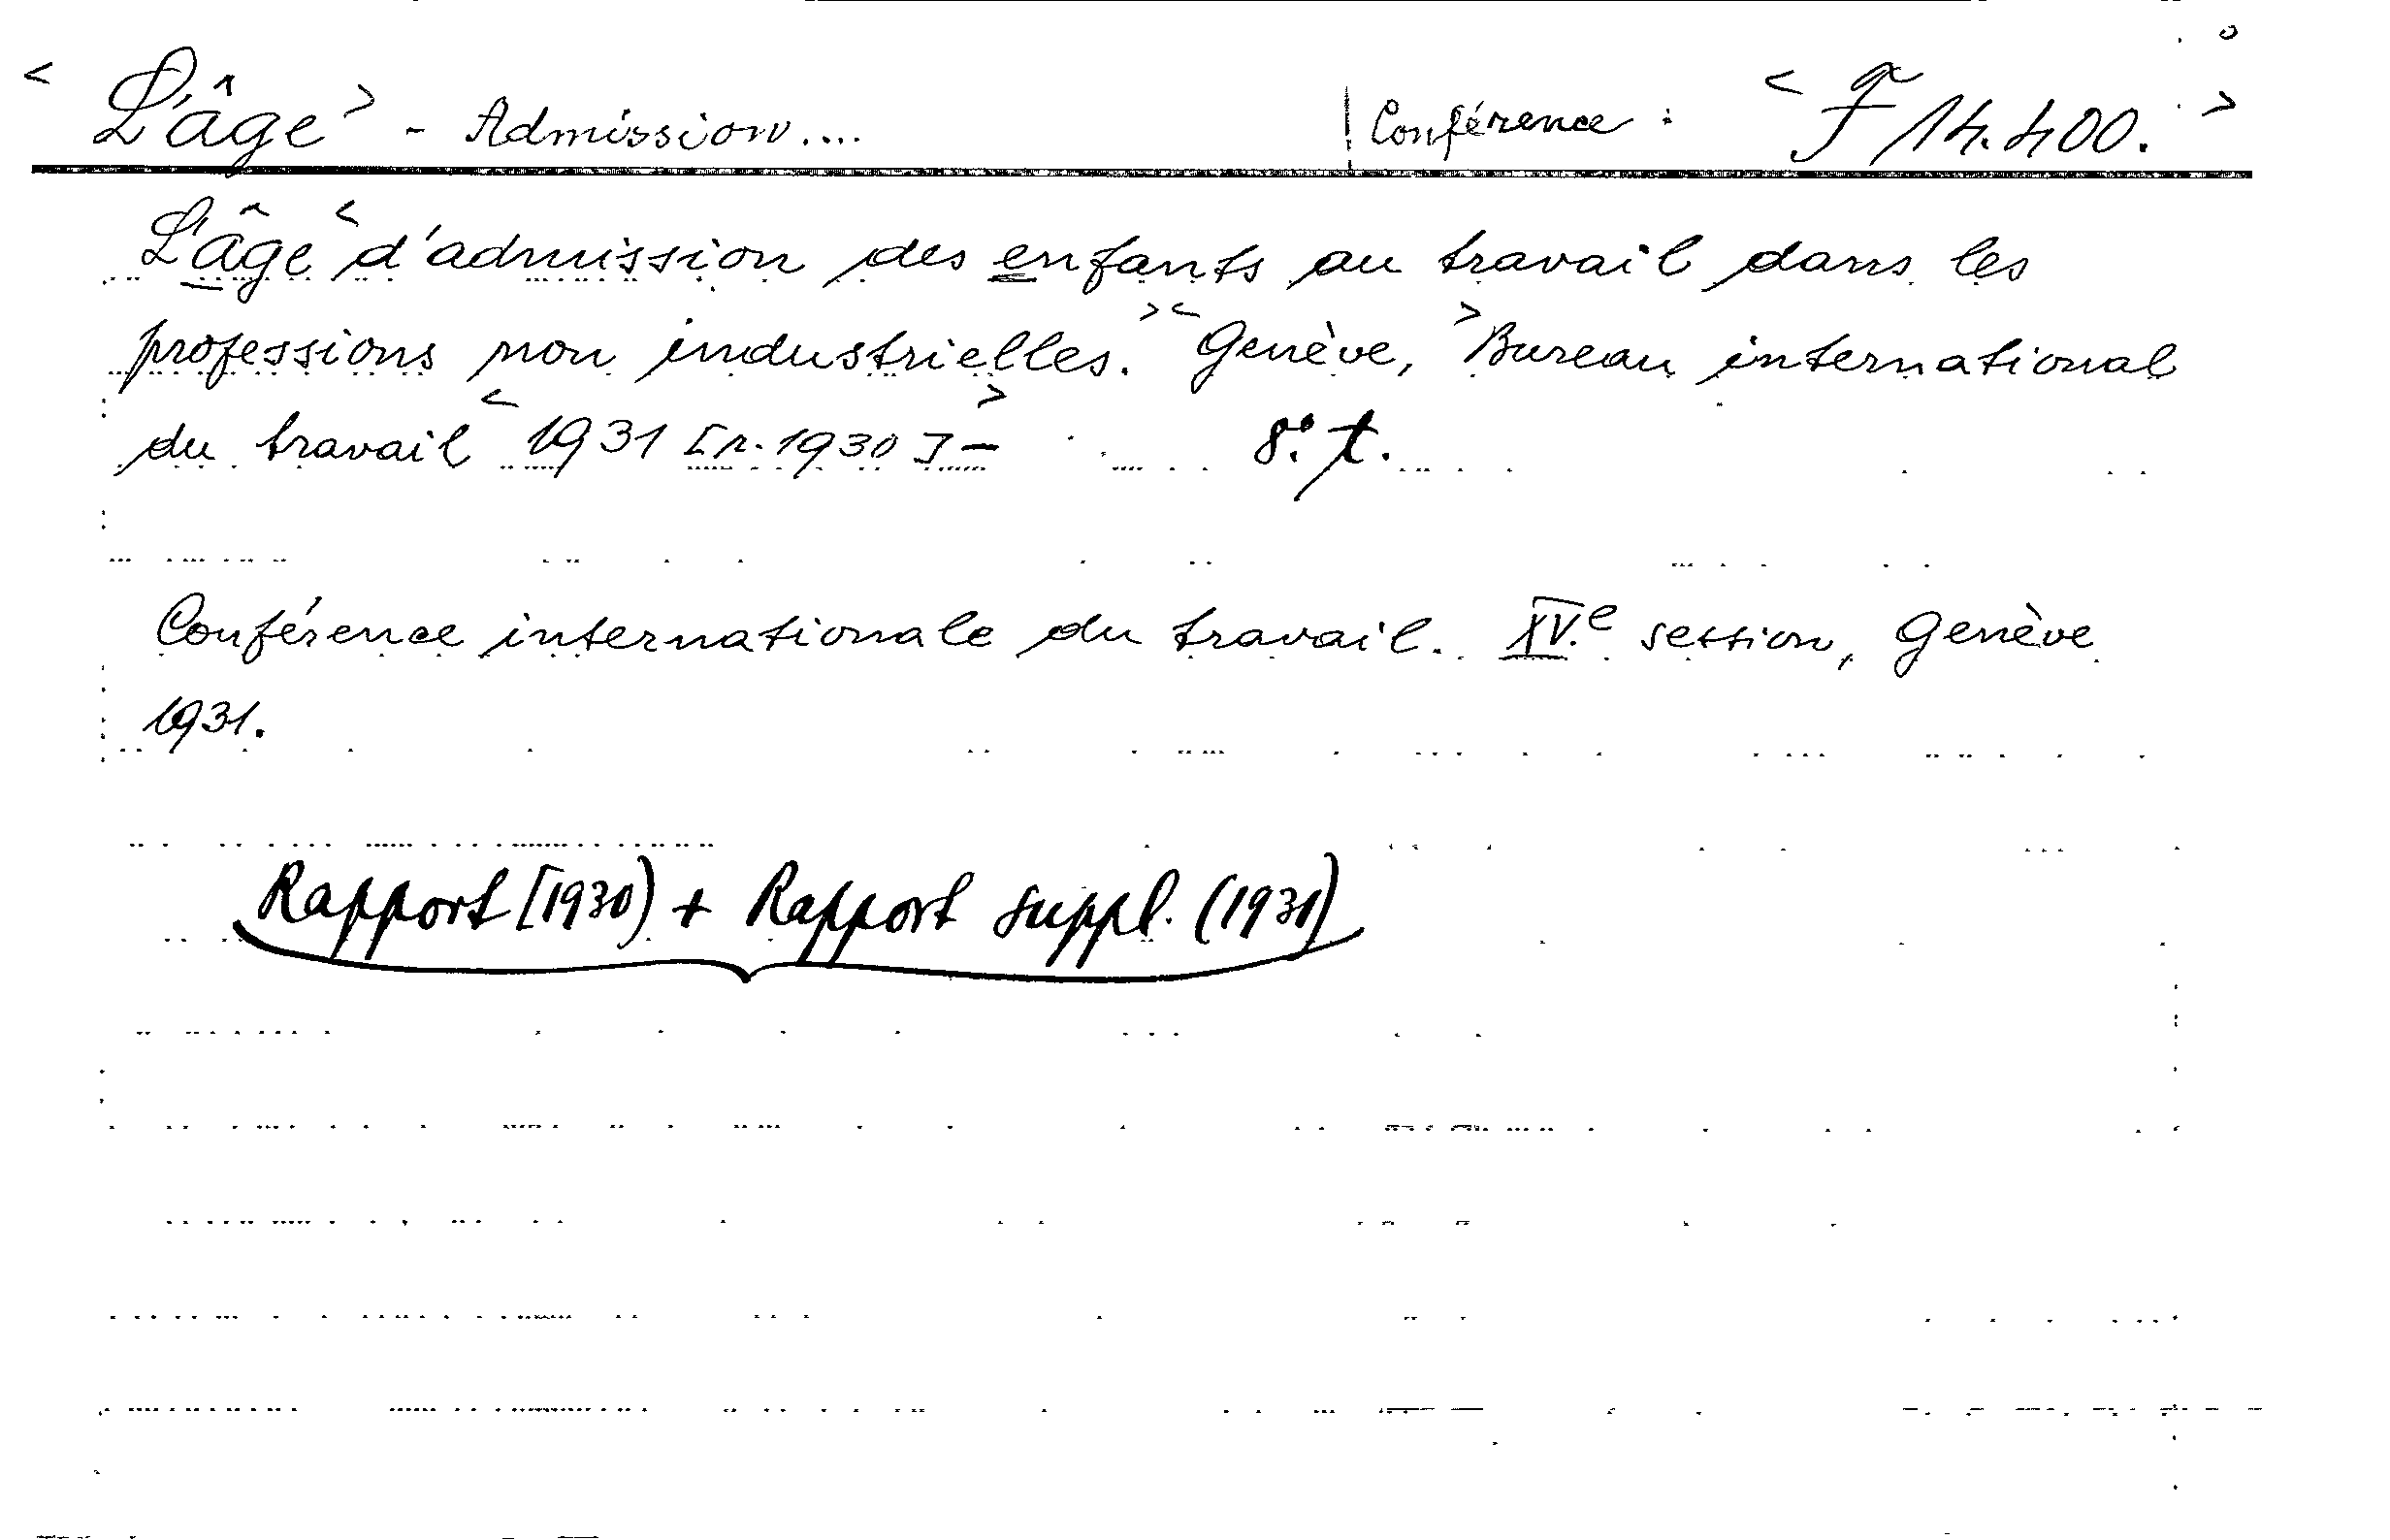 < L'âge > - Admission.... | Conférence : < F 14.400. >
L'âge < d'admission des enfants au travail dans les
professions non industrielles. > < Genève, > Bureau international
du travail < 1931 [r. 1930] - > 8° t.
Conférence internationale du travail. XV.e session, Genève
1931.
Rapport [1930) + Rapport suppl. (1931)